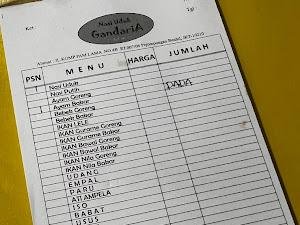 Ket
Nasi Uduk
GandariA
Alamat : JL.KOMP PAM LAMA NO.4B RT.007/06 Pejompongan Bendhil, JKT-10210
PSN MENU HARGA JUMLAH
1 Nasi Uduk
Nasi Putih
1 Ayam Goreng PADA
Ayam Bakar
Bebek Goreng
Bebek Bakar
IKAN LELE
IKAN Gurame Goreng
IKAN Gurame Bakar
IKAN Bawal Goreng
IKAN Bawal Bakar
IKAN Nila Goreng
IKAN Nila Bakar
UDANG
EMPAL
PARU
ATI AMPELA
ISO
BABAT
USUS